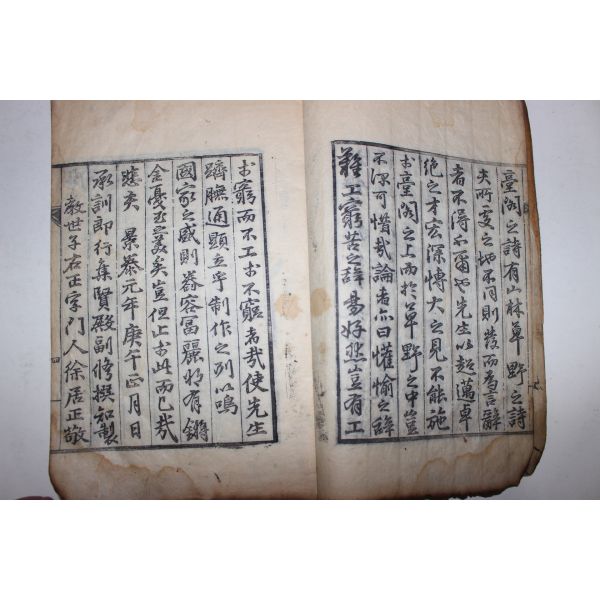 臺閣之詩有山林草野之詩
夫所受之地不同則發而爲言辭
者不得不爾也先生以超邁卓
絶之才宏深博大之見不能施
於臺閣之上而於草野之中豈
不深可惜哉論者亦曰懽愉之辭
難工窮苦之辭易好然豈有工
於窮而不工於不窮者哉使先生
躋膴通顯立乎制作之列以鳴
國家之盛則舂容富麗將有鏘
金戛玉之美矣豈但止於此而已哉
悲夫景泰元年庚午正月日
承訓郞行集賢殿副修撰知製
敎世子右正字門人徐居正敬